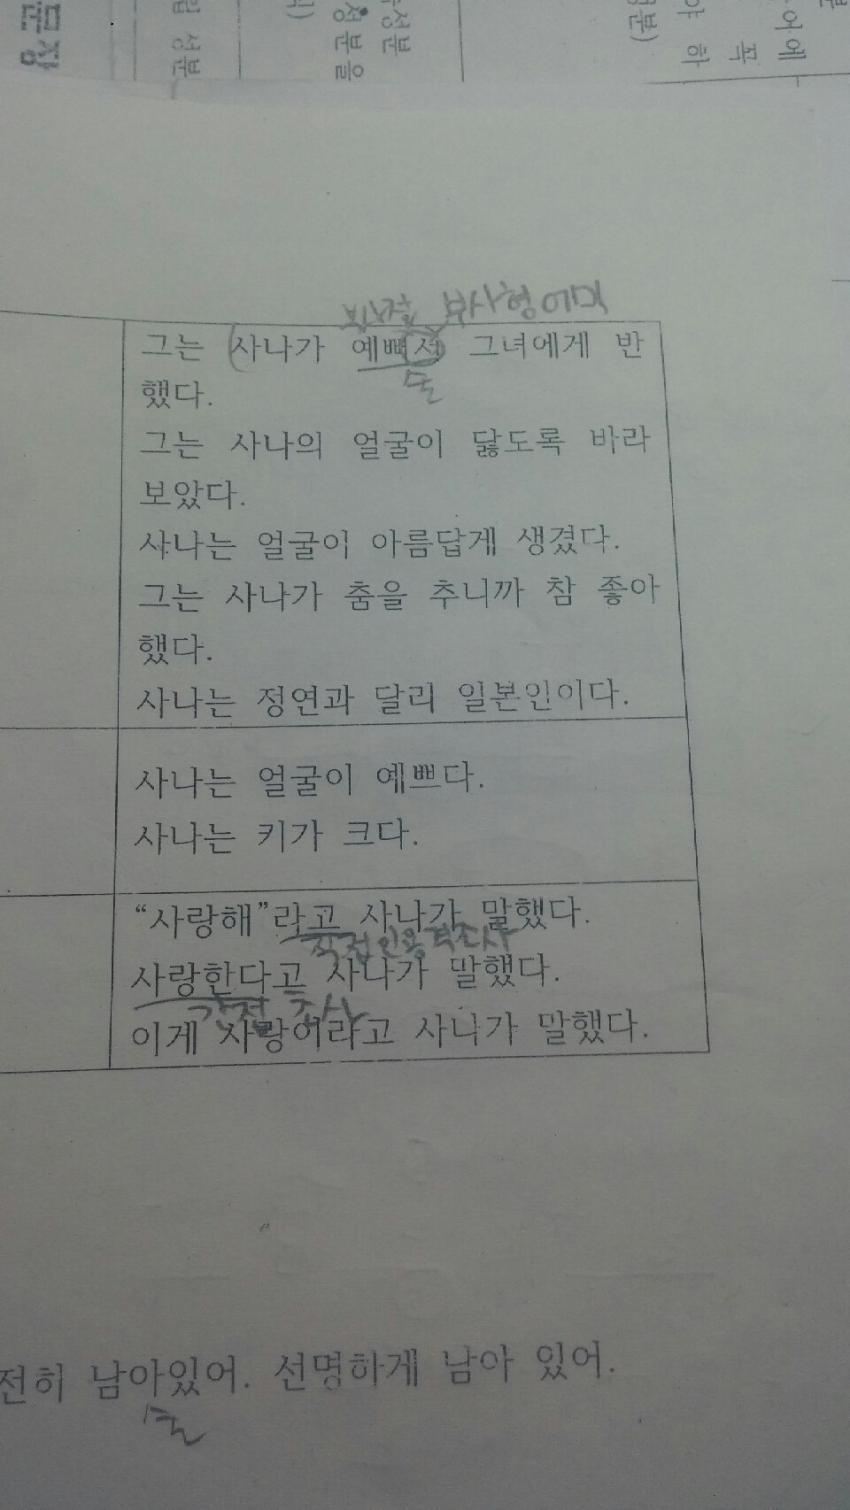 문장
성분
성분을
성분
성분)
야 하
꼭
어에
부사형어미
그는 사나가 예뻐서 그녀에게 반
했다.
그는 사나의 얼굴이 닳도록 바라
보았다.
사나는 얼굴이 아름답게 생겼다.
그는 사나가 춤을 추니까 참 좋아
했다.
사나는 정연과 달리 일본인이다.
사나는 얼굴이 예쁘다.
사나는 키가 크다.
“사랑해”라고 사나가 말했다.
직접인용격조사
사랑한다고 사나가 말했다.
간접 조사
이게 사랑이라고 사나가 말했다.
전히 남아있어. 선명하게 남아 있어.